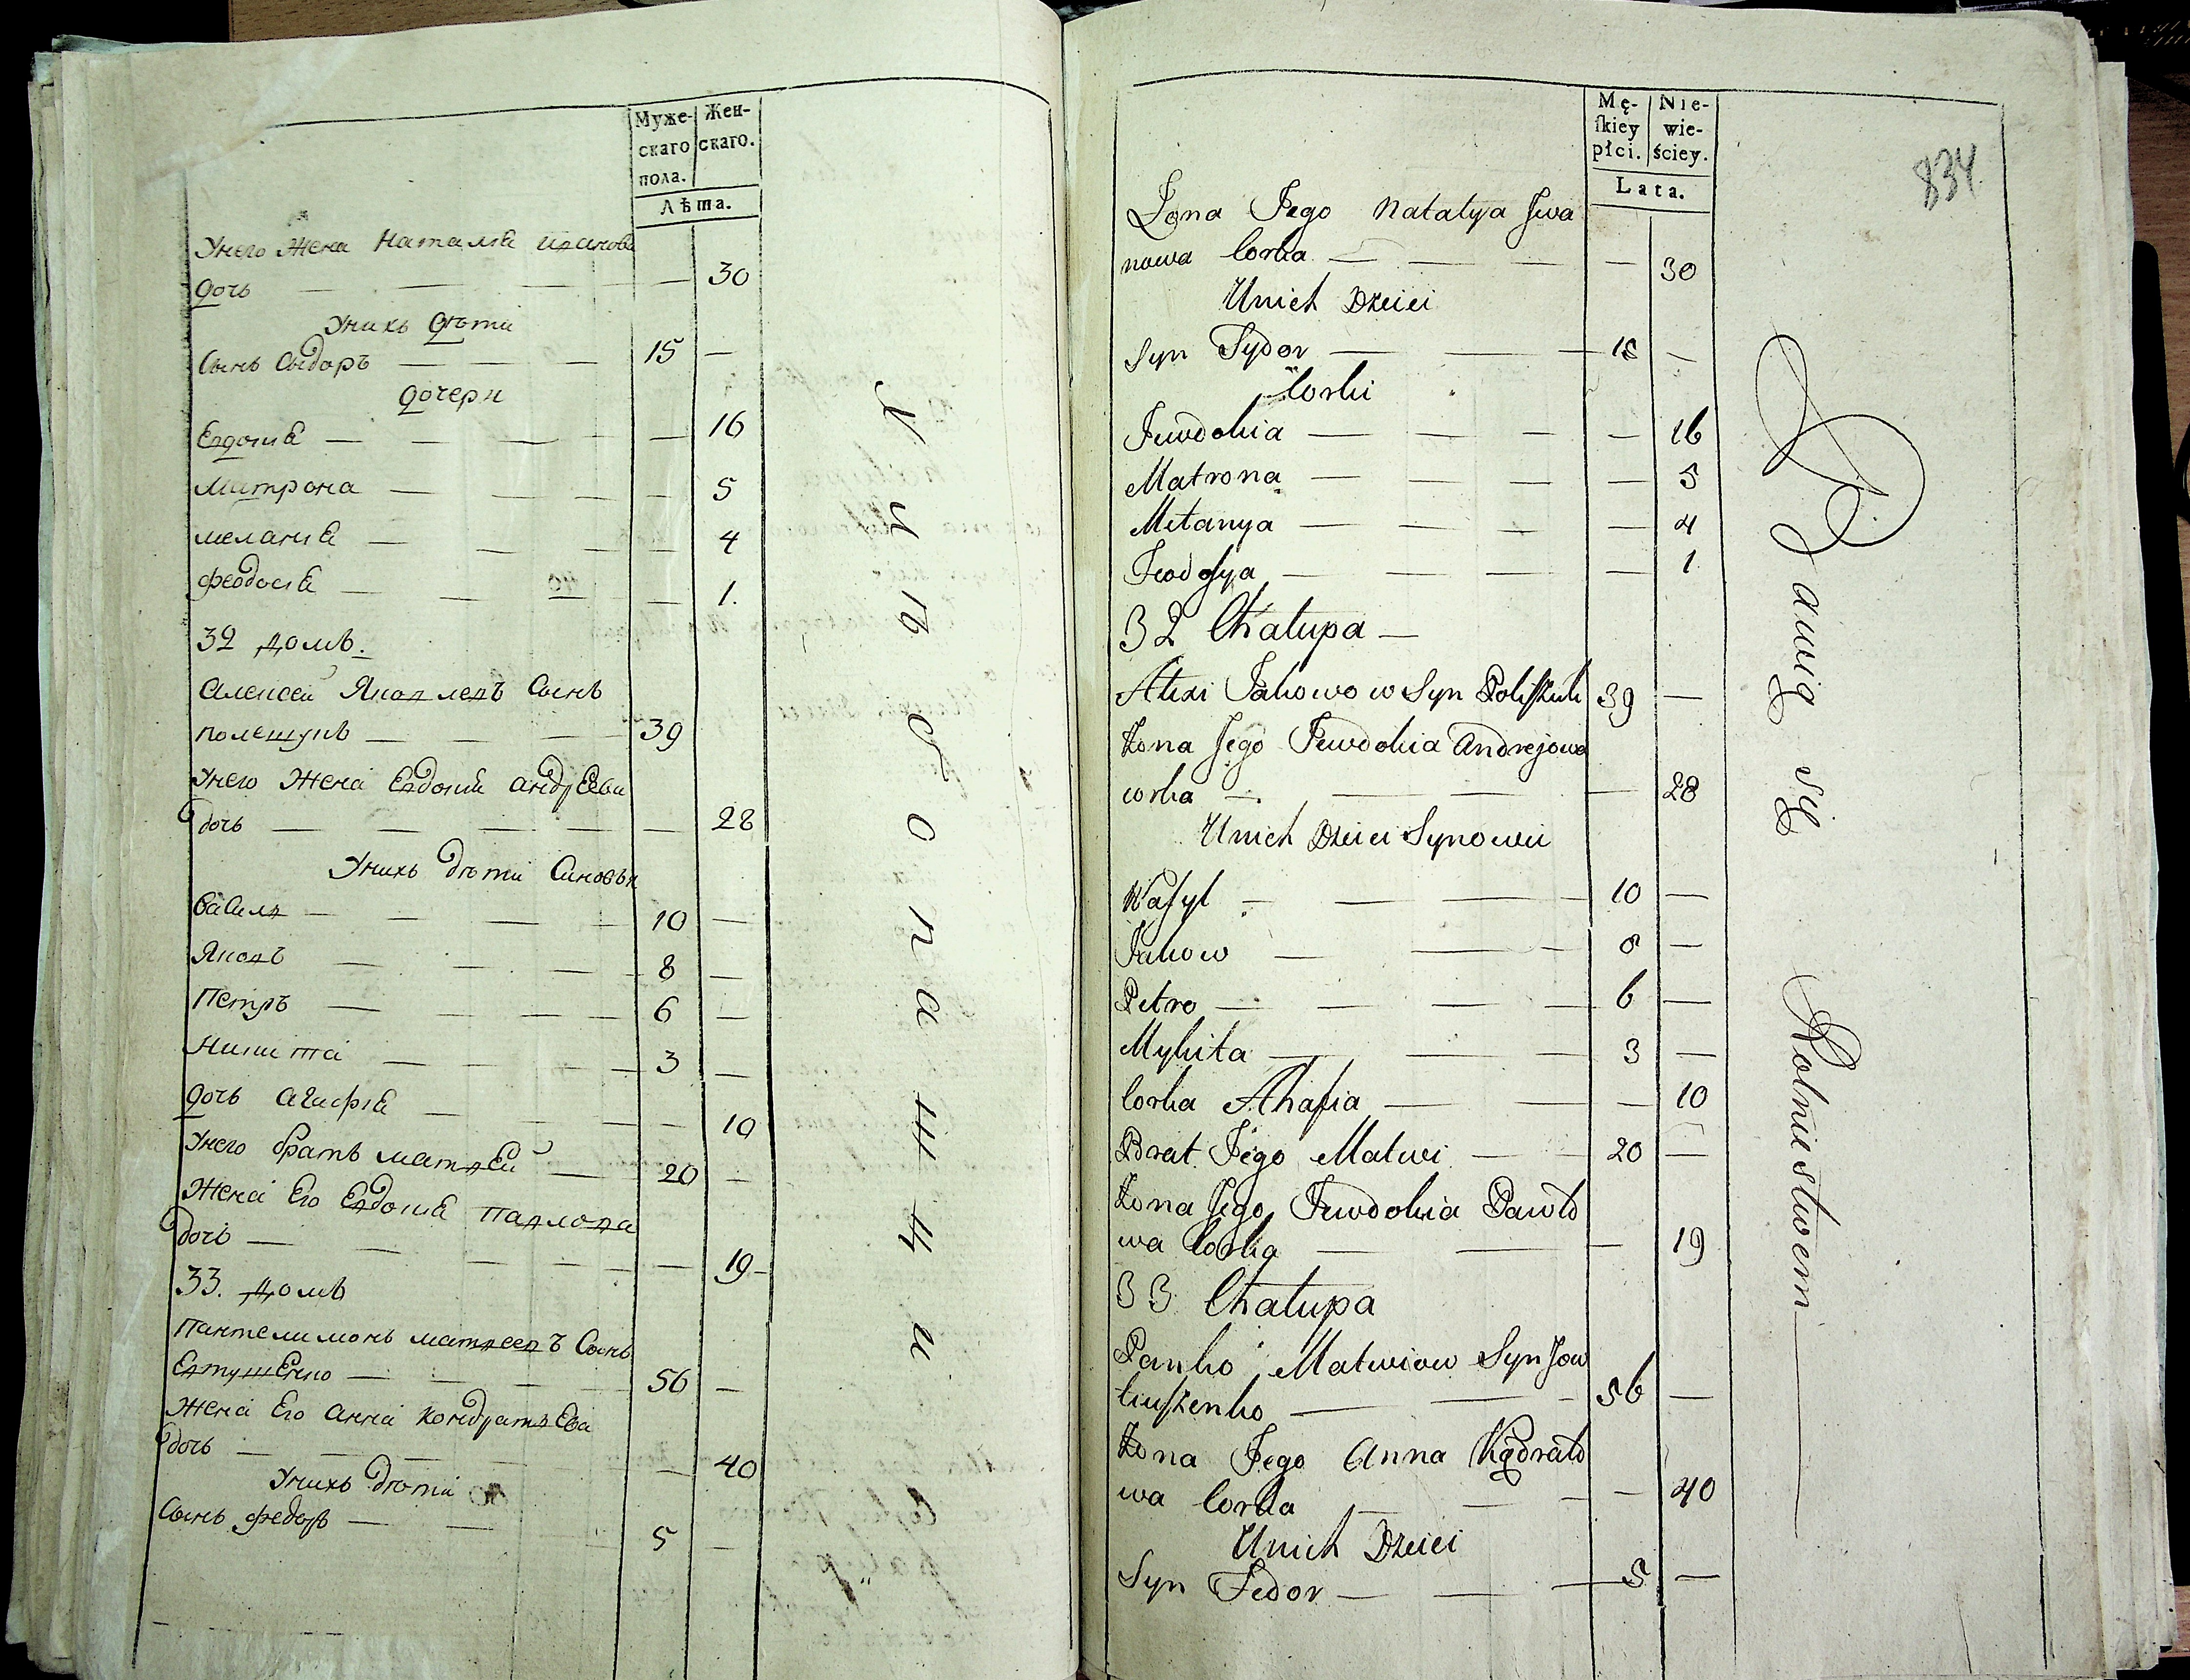 Муже- Жен-
скаго скаго.
пола.
Лѣта.
Унего Жена Наталıя Иванова
дочь — — — — — 30
Унихъ дѣти
Сынъ Сыдоръ — — — 15 —
дочери
Евдокıя — — — — — 16
Матрона — — — — — 5
меланıя — — — — — 4
феодосıя — — — — 1.
32 домъ.
Алексей Яковлевъ Сынъ
полещукъ — — — — 39
Унего Жена Евдокıя андрѣева
дочь — — — — — 28
Унихъ дѣти Синовьи
Василь — — — — 10 —
Яковъ — — — — 8 —
Петръ — — — — 6 —
Никита — — — — 3 —
дочь агафıя — — — — 10
Унего братъ матвей — 20 —
Жена Его Евдокıя Павлова
дочь — — — — — 19 —
33. домъ
Пантелимонъ матвеевъ Сынъ
Евтушенко — — — — 56 —
Жена Его анна кондратьева
дочь — — — — — 40
Унихъ дѣти
Сынъ федоръ — — — 5 —
Хлѣбопашци
834
Mę- Nie-
ſkiey wie-
płci. ściey.
Lata.
Żona Jego Natalya Jwa
nowa Corka — — — — 30
Unich Dzieci
Syn Sydor — — — 15 —
Corki
Jewdokia — — — — 16
Matrona — — — — 5
Melanya — — — — 4
Feodoſya — — — — 1
32 Chałupa —
Alexi Jakowow Syn Poliſzuk 39 —
Żona Jego Jewdokia Andrejowa
corka — — — — 28
Unich Dzieci Synowie
Waſyl — — — 10 —
Jakow — — — 8 —
Petro — — — — 6 —
Mykita — — — 3 —
Corka Ahafia — — — 10
Brat Jego Matwi — — 20 —
Żona Jego Jewdokia Pawło
wa Corka — — — 19
33 Chałupa
Panko Matwiow Syn Jow
tiuſzenko — — — 56 —
Żona Jego Anna Kądrato
wa Corka — — — — 40
Unich Dzieci
Syn Fedor — — — 5 —
Bawią się Rolniestwem —